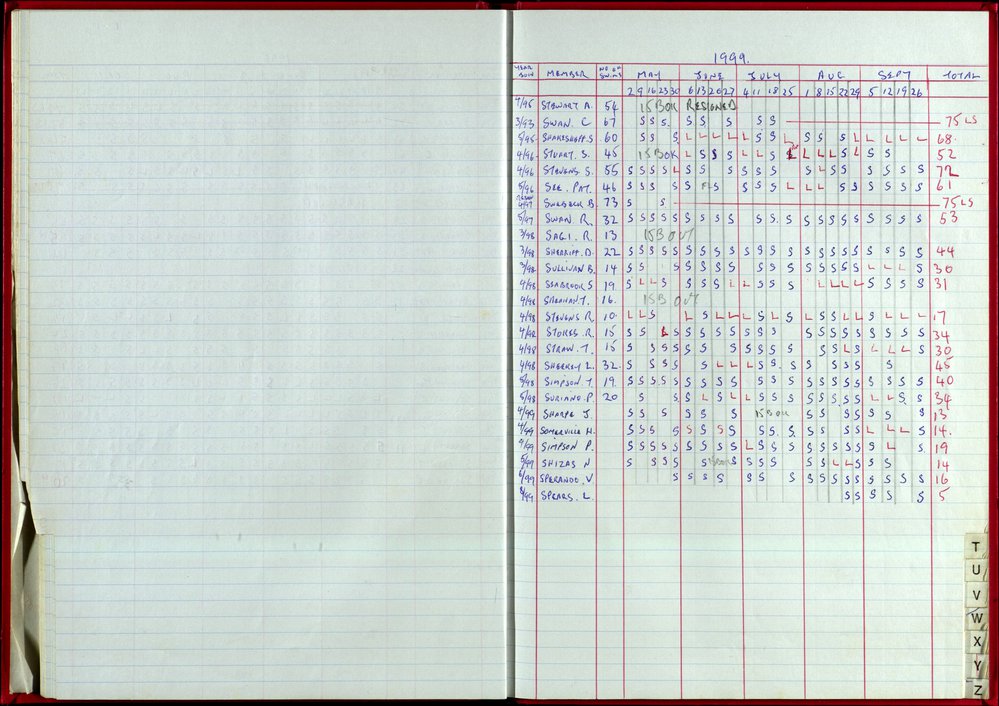 1999.
YEAR MEMBER NO OF SWIMS MAY JUNE JULY AUG SEPT TOTAL
2 9 16 23 30 6 13 20 27 4 11 18 25 1 8 15 22 29 5 12 19 26
4/95 STEWART A. 54 15 BOK RESIGNED
3/93 SWAN. C 67 S S S. S S S S S 75 LS
5/95 SHAKESHAFT. S 60 S S S L L L L L S S L S S S L L L L L 68.
4/96 STUART. S. 45 15 BOK L S S S L L S L L L L S L S S 52
4/96 STEVENS S. 55 S S S S L S S S S S S S S L S S S S S S 72
5/96 SEE. PAT. 46 S S S S S S S S S L L L S S S S S S S 61
4/97 B. 73 S S 75 LS
5/97 SWAN R. 32 S S S S S S S S S S S. S S S S S S S S S S 53
3/98 SAGI. R. 13 15 B OUT
3/98 SHERRIFF. D. 22 S S S S S S S S S S S S S S S S S S S S S S 44
3/98 SULLIVAN B. 14 S S S S S S S S S S S S S S S S L L L S 30
4/98 SEABROOK S 19 S L L S S S S L L S S S L L L L S S S S 31
4/98 T. 16. 15 B OUT
4/98 STEVENS R. 10. L L S L S L L L S L S L S S L L S L L L 17
4/98 STOKES. R. 15 S S L S S S S S S S S S S S S S S S S S 34
4/98 STRAW. T. 15 S S S S S S S S S S S S S S L S L L L S 30
4/98 SHERKEY L. 32. S S S S S L L L S S. S S S S S S S 45
5/98 SIMPSON. T. 19. S S S S S S S S S S S S S S S S S S S S S 40
5/98 SURIANO. P. 20 S S S L S L L S S S S S S S S L L S S 34
4/99 SHARPE J. S S S S S S 15 B OK S S S S S S S 13
4/99 SOMERVILLE H. S S S S S S S S S S. S S S S S L L L S 14.
4/99 SIMPSON P. S S S S S S S S S L S S S S S S S S S L S 19
5/99 SHIZAS N S S S S S S S S S S S L L S S S 14
6/99 SPERANDO. V S S S S S S S S S S S S S S S S S 16
8/99 SPEARS. L. S S S S S 5
T
U
V
W
X
Y
Z